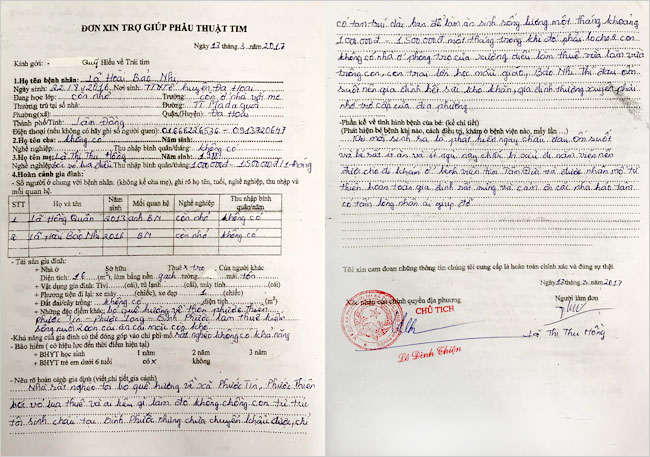 ĐƠN XIN TRỢ GIÚP PHẪU THUẬT TIM
Ngày 13 tháng 3 năm 2017
Kính gởi: Quỹ Hiểu về Trái tim
1.Họ tên bệnh nhân: Lã Hoài Bảo Nhi
Ngày sinh: 22/8/2016 Nơi sinh: TTYTế huyện Đạ Hoai
Đang học lớp: còn nhỏ Trường: còn ở nhà với mẹ
Thương trú tại số nhà: Đường: TT. Mađaguôi
Phường(xã): Quận(huyện): Đạ Hoai
Thành phố/Tỉnh: Lâm Đồng
Điện thoại (nếu không có hãy ghi số người quen): 01866226536 - 0913720647
2.Họ tên cha: không có Năm sinh:
Nghề nghiệp: Thu nhập bình quân/tháng: không có
3.Họ tên mẹ: Lã Thị Thu Hồng Năm sinh: 1981
Nghề nghiệp: Thu nhập bình quân/tháng: 1000000đ - 1500.000đ/1 tháng
4.Hoàn cảnh gia đình:
- Số người ở chung với bệnh nhân: (không kể cha mẹ), ghi rõ họ tên, tuổi, nghề nghiệp, thu nhập và
mối quan hệ.
STT Họ và tên Năm sinh Mối quan hệ Nghề nghiệp Thu nhập bình quân/năm
1 Lã Hồng Quân 2013 anh BN còn nhỏ không có
2 Lã Hoài Bảo Nhi 2016 BN còn nhỏ không có
- Tài sản gia đình:
+ Nhà ở Sở hữu Thuê x trọ Của người khác
Diện tích: 16 (m²), làm bằng nền gạch tường, mái tôn
+ Vật dụng gia đình: Tivi (cái), tủ lạnh (cái), máy tính (cái)
+ Phương tiện đi lại: xe máy (chiếc), xe đạp 1 (chiếc)
+ Đất đai/cây trồng: không có diện tích (m²)
+ Những đặc điểm khác: bỏ quê hương về thôn phước Thiện
Phước Tín - Phước Long - Bình Phước làm thuê kiếm
sống nuôi 2 con
- Khả năng của gia đình có thể đóng góp vào chi phí mổ: rất nghèo không có khả năng
+ Bảo hiểm (có hiệu lực đến thời điểm hiện tại)
+ BHYT học sinh 1 năm 2 năm 3 năm
+ BHYT trẻ em dưới 6 tuổi có x không
- Nêu rõ hoàn cảnh gia đình (viết chi tiết gia cảnh)
Nhà rất nghèo tôi bỏ quê hương về xã Phước Tín, Phước Thiện
vỏ lụa thuê và ai kêu gì làm đó không chồng con từ từ
tôi sinh cháu tại Bình Phước nhưng chưa chuyển khẩu được, chỉ
có tạm trú dài hạn để làm ăn sinh sống lương một tháng khoảng
1000.000đ - 1500.000đ một tháng trong khi đó phải lo cho 2 con
không có nhà ở phòng trọ của xưởng điều làm thuê vừa làm vừa
trông con, con trai lớn học mẫu giáo, Bảo Nhi thì đau ốm
suốt nên gia cảnh hết sức khó khăn, gia đình thường xuyên phải
nhờ trợ cấp của địa phương.
-Phần kể về tình hình bệnh của bé: (kể chi tiết)
(Phát hiện bệnh khi nào, cách điều trị, khám ở bệnh viện nào, mấy lần…)
mới sinh ra là phát hiện nguy cháu đau ốm suốt
và bé rất ít ăn và ít ngủ, nay cháu bị suy dinh năm viện nên
được cho đi khám ở bệnh viện tim Tâm Đức và được nhận mổ từ
thiện hoàn toàn gia đình rất mừng và cảm ơn các nhà hảo tâm
có tấm lòng nhân ái giúp đỡ
Tôi xin cam đoan những thông tin chúng tôi cung cấp là hoàn toàn chính xác và đúng sự thật.
Ngày 13 tháng 3 năm 2017
Xác nhận của chính quyền địa phương
Người làm đơn
CHỦ TỊCH
Lã Thị Thu Hồng
Lê Đình Thiện